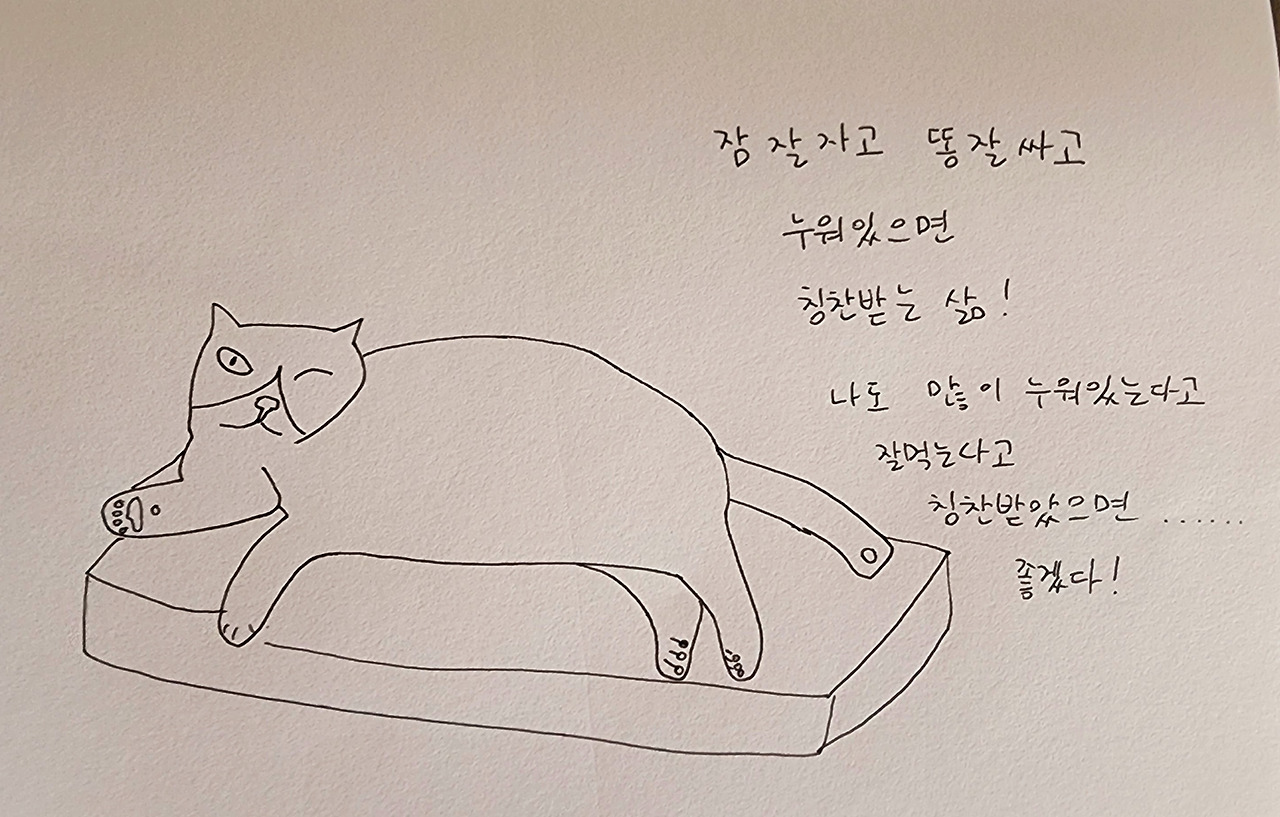 잠 잘 자고 똥 잘 싸고
누워있으면
칭찬받는 삶!
나도 많이 누워있는다고
잘먹는다고
칭찬받았으면 ......
좋겠다!